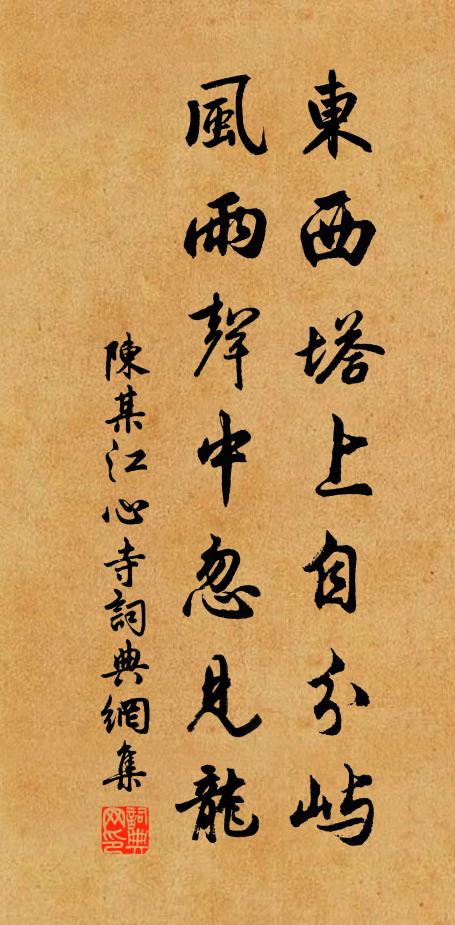 東西塔上自分屿
風雨聲中忽見龍
陳某江心寺詞典網集
詞典网印